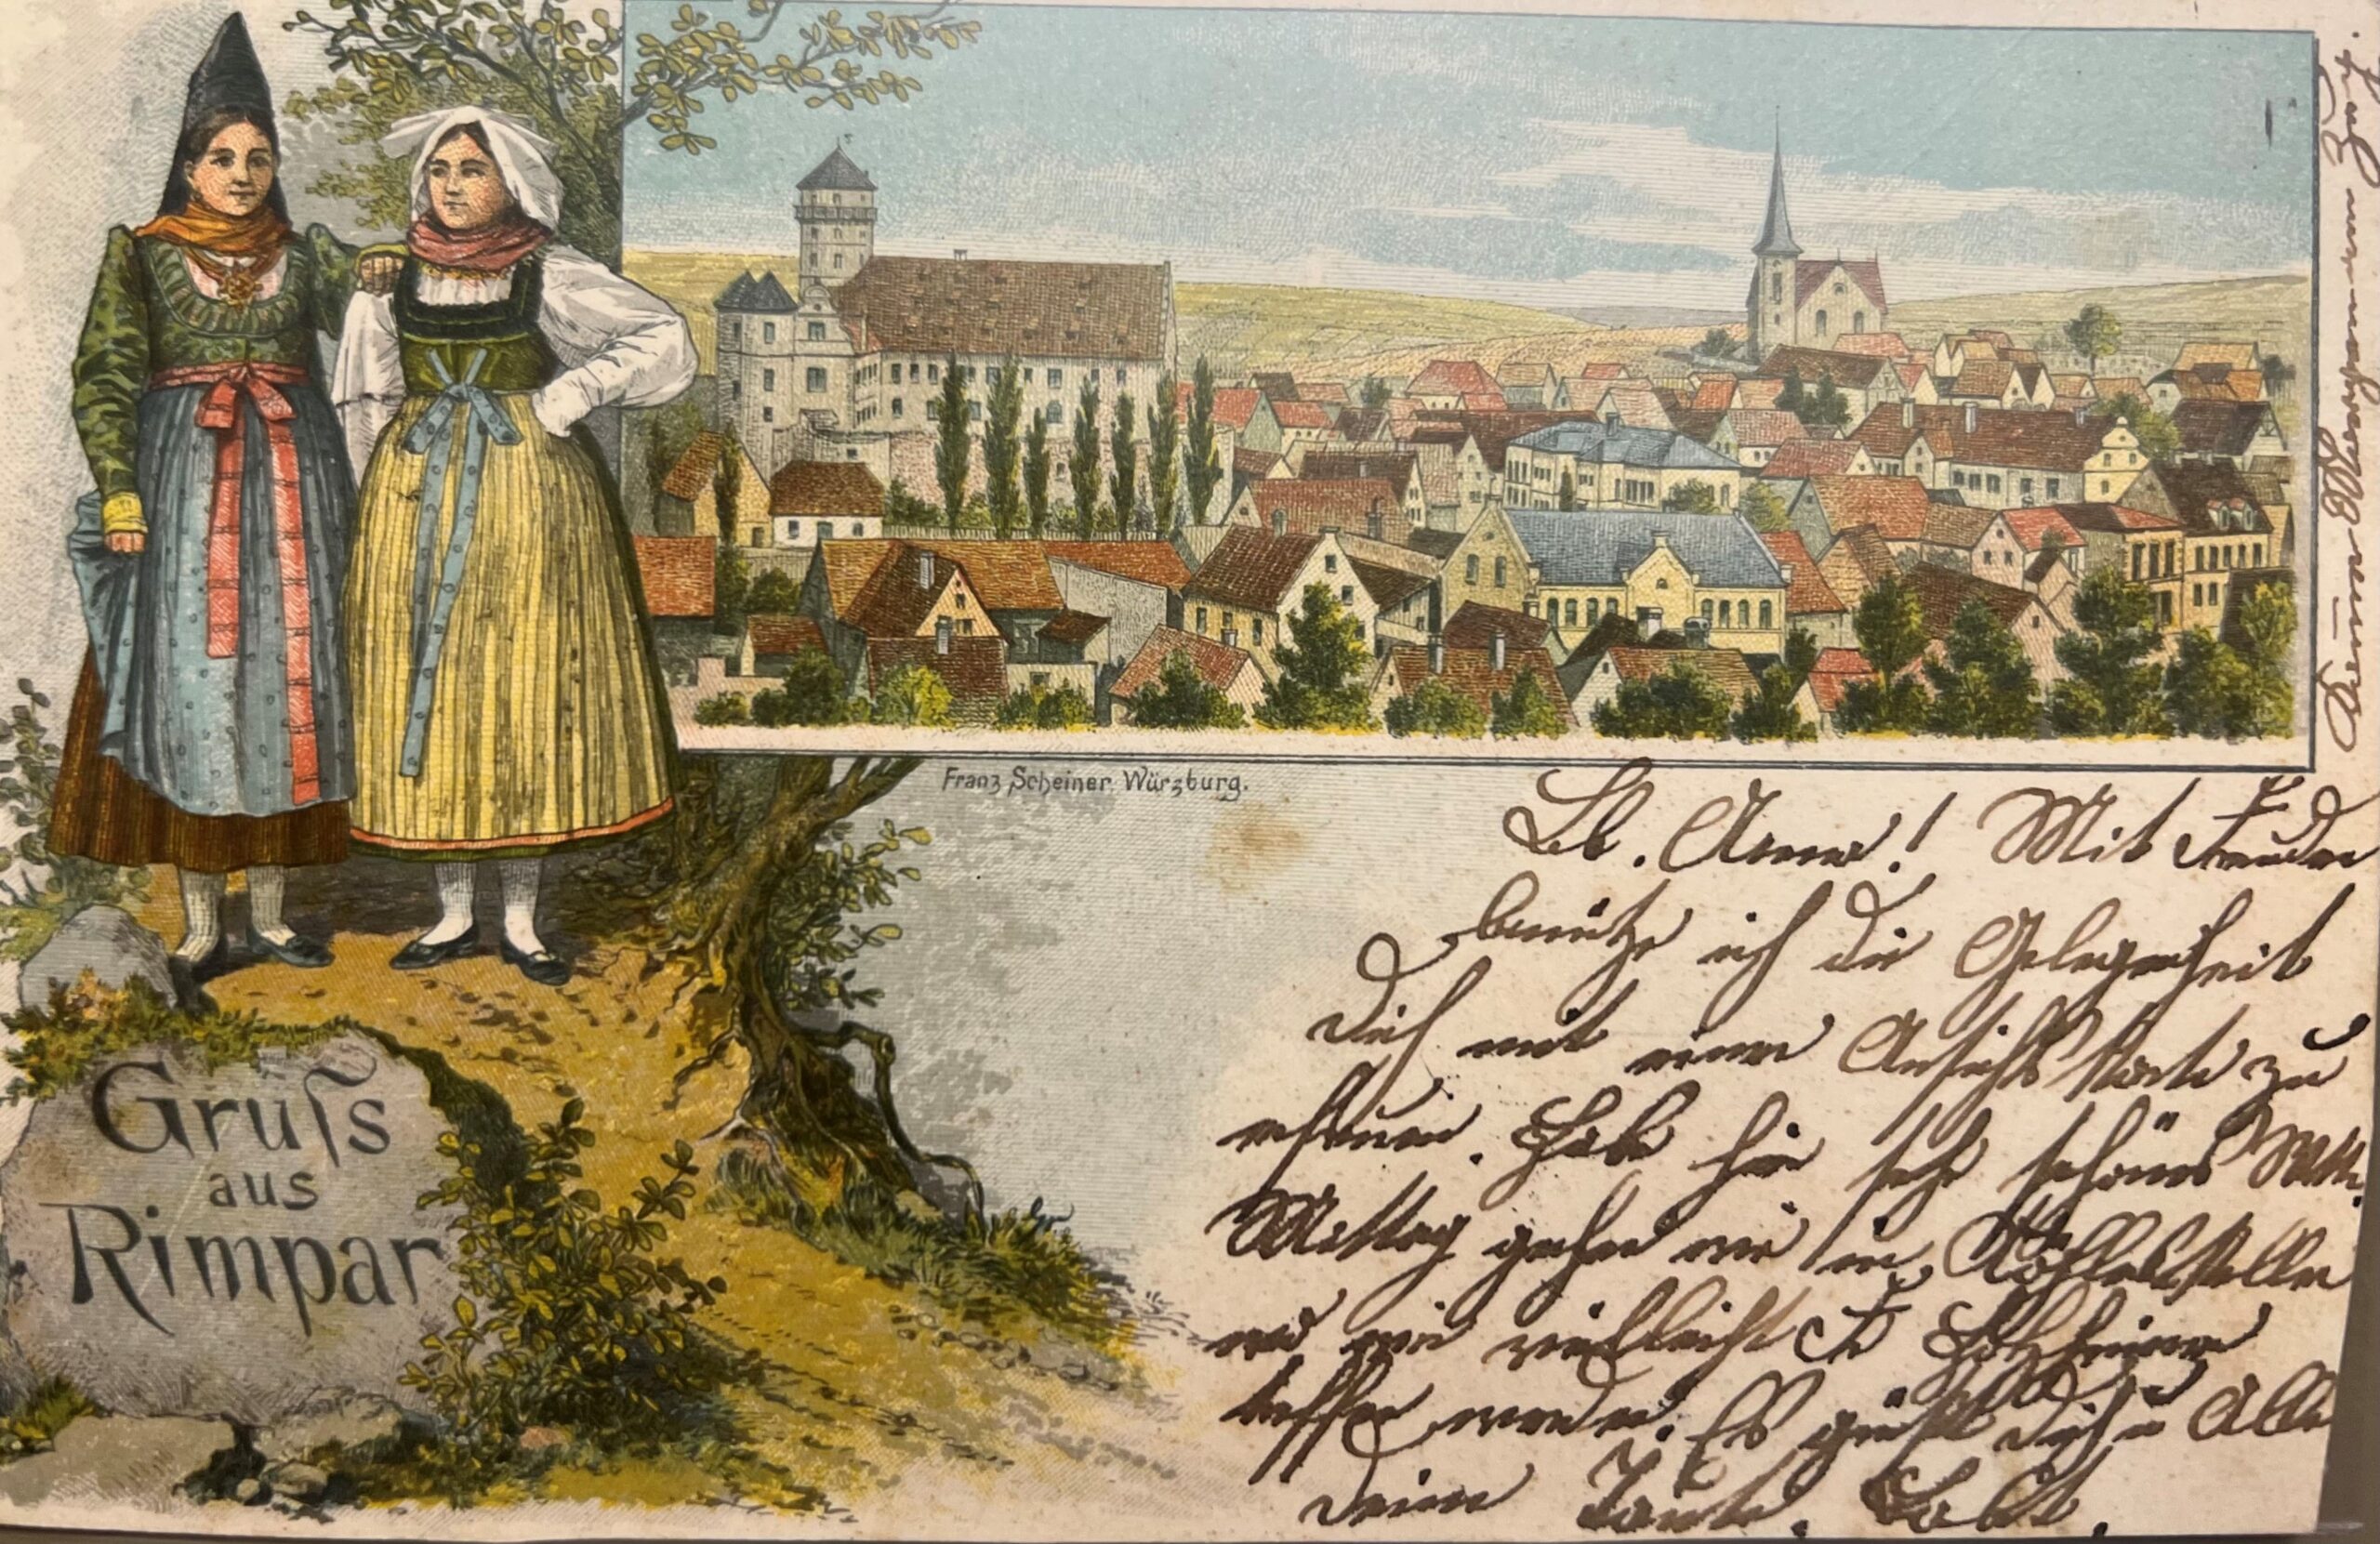 Franz Scheiner, Würzburg.
Gruſs
aus
Rimpar
Lb. Anna! Mit Freuden
benütze ich die Gelegenheit
Dich mit einer Ansichtskarte zu
erfreuen. Habe hier sehr schönes
Mittag gehen wir in
wo wir vielleicht Fr
treffen werden. Es grüßt Dich u Alle
Deine Tante.